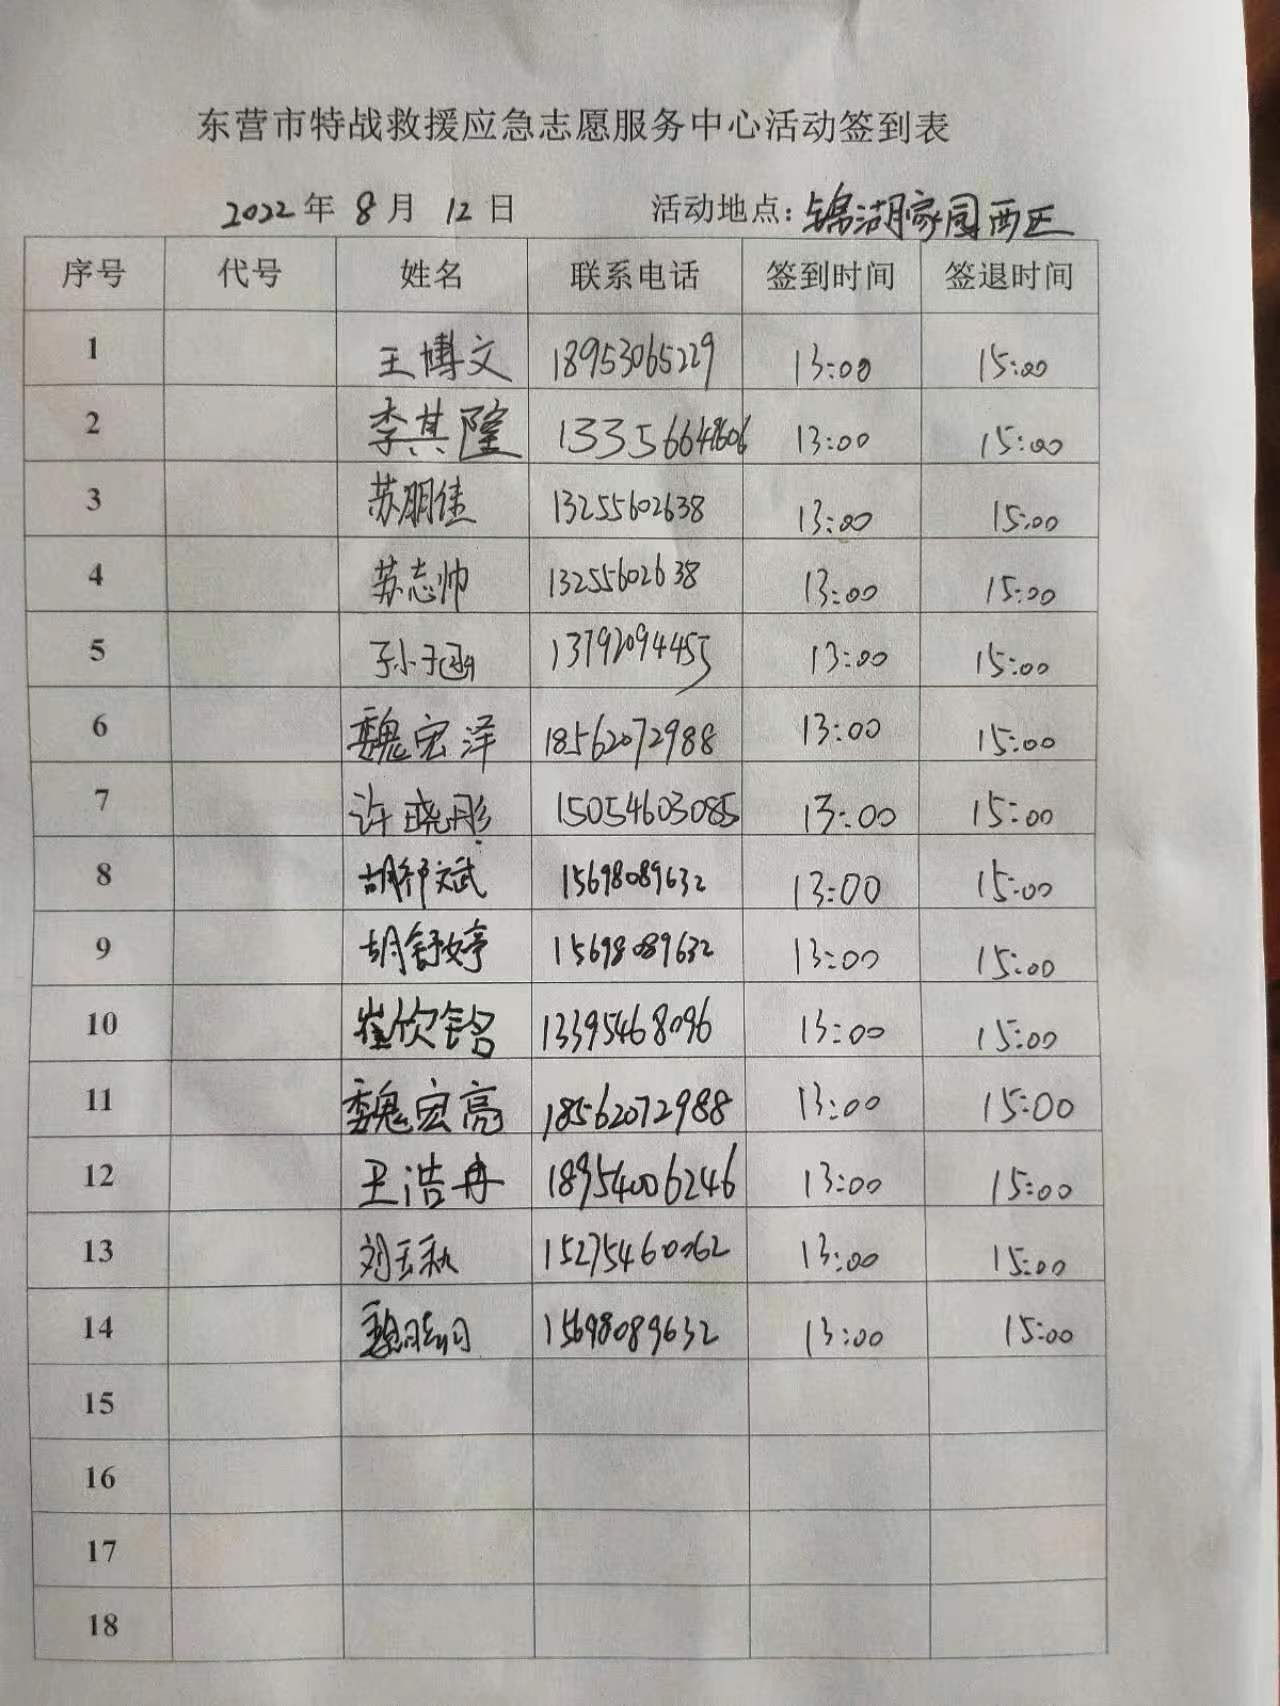 东营市特战救援应急志愿服务中心活动签到表
2022年 8月 12日 活动地点：锦湖家园西区
序号 代号 姓名 联系电话 签到时间 签退时间
1 王博文 18953065229 13:00 15:00
2 李其隆 13356648606 13:00 15:00
3 苏朋佳 13255602638 13:00 15:00
4 苏志帅 13255602638 13:00 15:00
5 孙子涵 13792094455 13:00 15:00
6 魏宏泽 18562072988 13:00 15:00
7 许晓彤 15054603085 13:00 15:00
8 15698089632 13:00 15:00
9 胡舒婷 15698089632 13:00 15:00
10 崔欣铭 13395468096 13:00 15:00
11 魏宏亮 18562072988 13:00 15:00
12 王浩冉 18954006246 13:00 15:00
13 刘玉秋 15275460062 13:00 15:00
14 15698089632 13:00 15:00
15
16
17
18